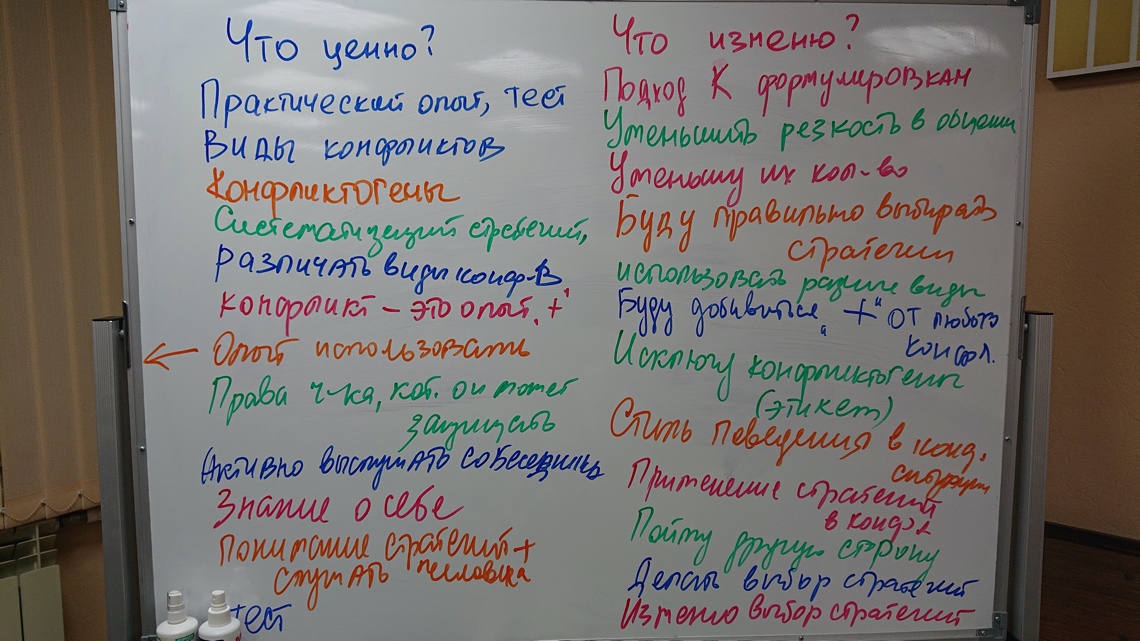 Что ценно?
Практический опыт, тест
Виды конфликтов
Конфликтогены
Систематизаций стратегий,
различать виды конф-в
конфликт – это опыт, "+"
← Опыт использовать
Права ч-ка, кот. он может
защищать
Активно выслушать собеседника
Знание о себе
понимание стратегий +
слушать человека
тест
Что изменю?
Подход к формулировкам
Уменьшить резкость в общении
Уменьшу их кол-во
Буду правильно выбирать
стратегии
использовать разные виды
Буду добиваться "+" от любого
конфл.
Исключу конфликтогены
(этикет)
Стиль поведения в конф.
ситуации
Применение стратегий
в конфл
Пойму другую сторону
Делать выбор стратегий
Изменю выбор стратегий